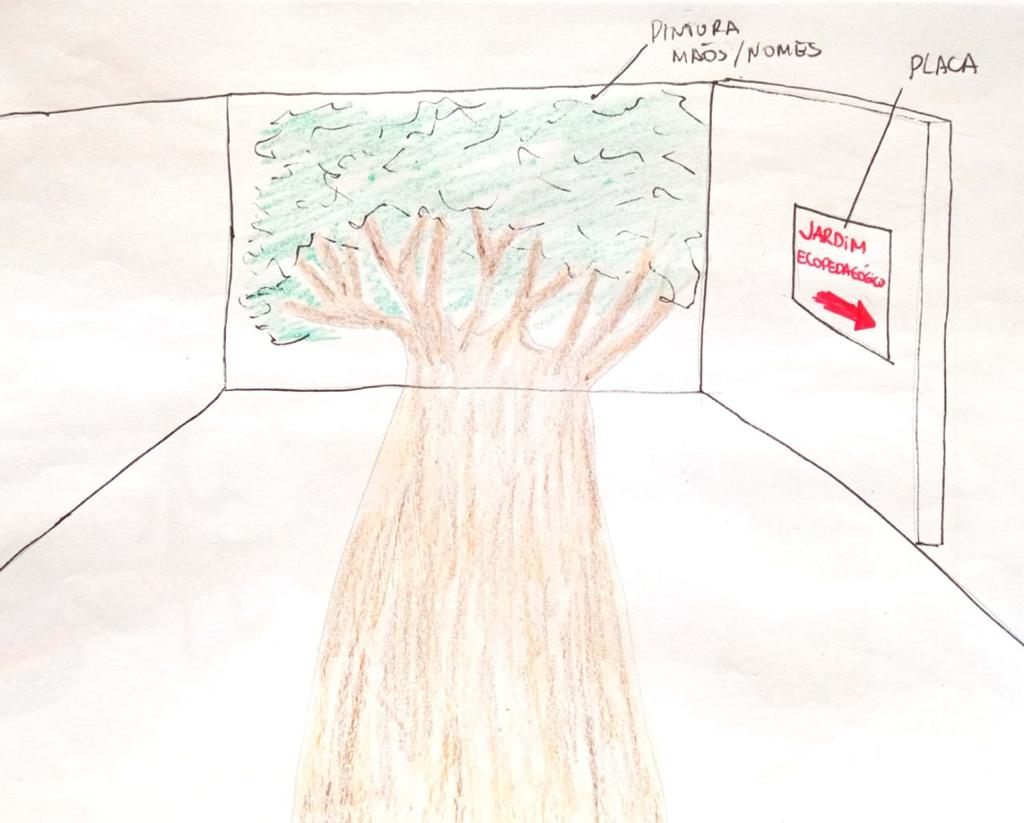 PINTURA
MAÕS/NOMES
PLACA
JARDIM
ECOPEDAGÓGICO